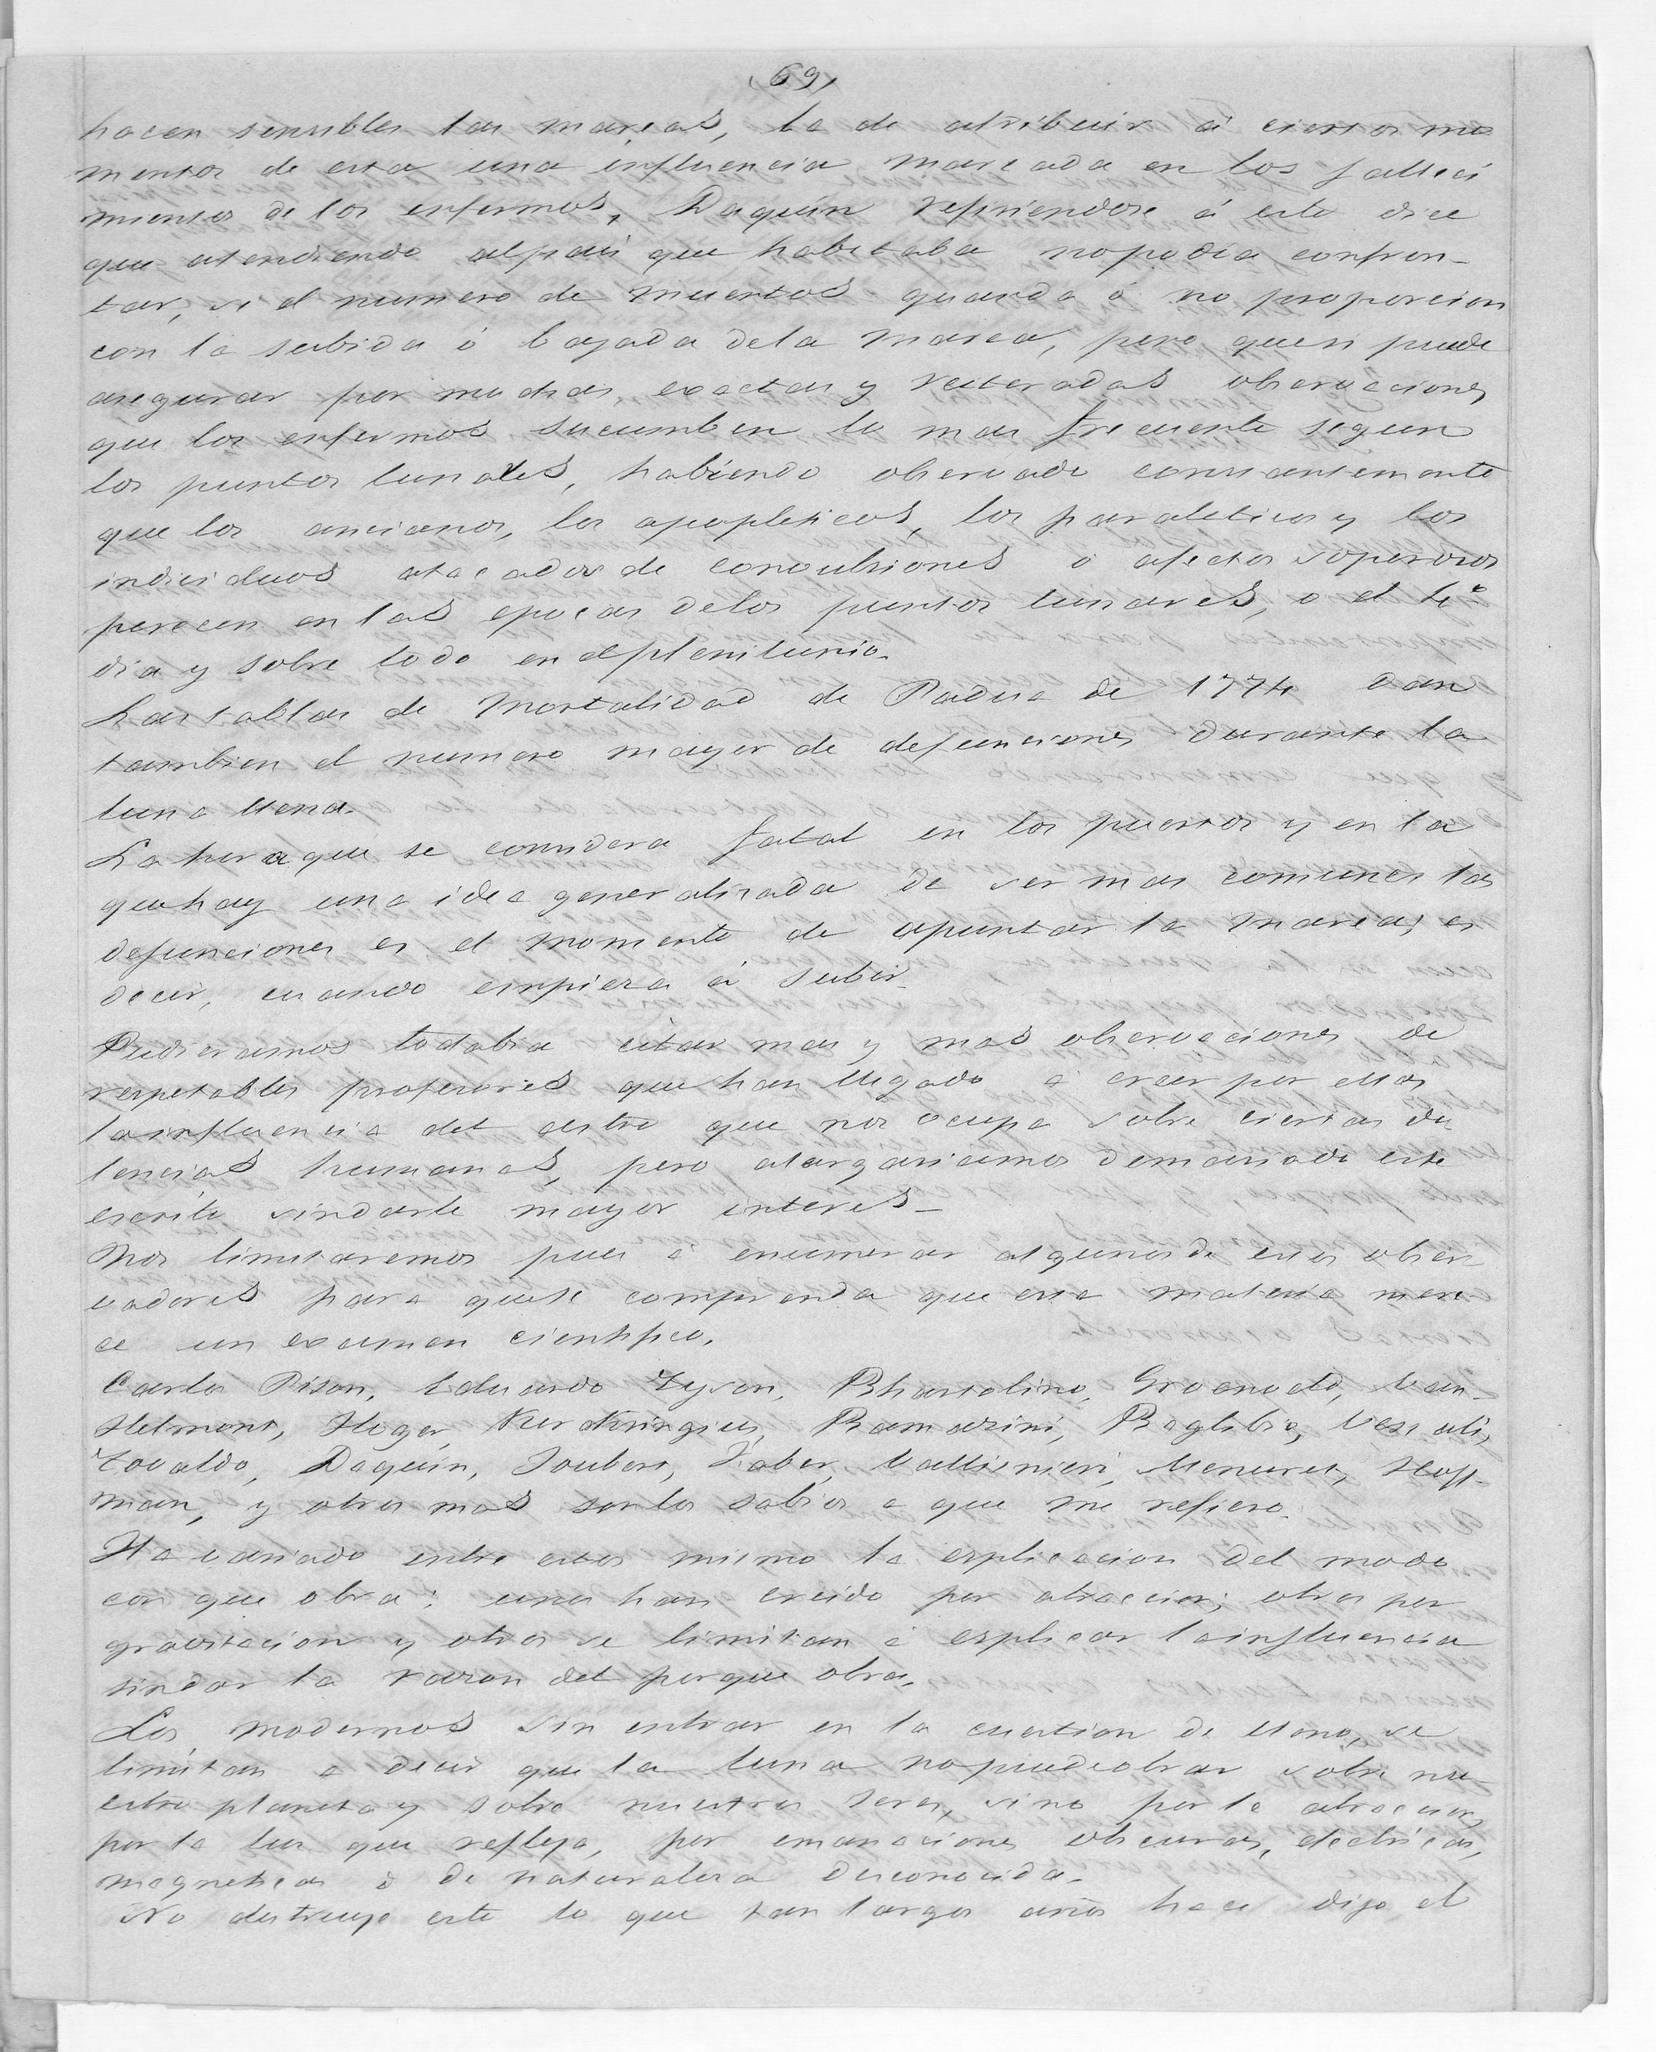 (69)
hacen sensibles las mareas, la de atribuir á ciertos mo
mentos de esta una influencia marcada en los falleci
mientos de los enfermos, Daquin refiriendose á esto dice
que atendiendo al pais que habitaba no podia confron-
tar, si el numero de muertos guarda ó no proporcion
con la subida ó bajada dela marea, pero que si puede
asegurar por muchas, exactas y reiteradas observaciones
que los enfermos sucumben lo mas frecuente segun
los puntos lunales, habiendo observado constantemente
que los ancianos, los apopleticos, los paraleticos y los
individuos atacados de convulsiones ó afectos soporosos
perecen en las epocas delos puntos lunares, o el 4.º
dia y sobre todo en elplenilunio.
Las tablas de mortalidad de Padua de 1774 dan
tambien el numero mayor de defunciones durante la
luna llena.
La hora que se considera fatal en los puertos y en la
que hay una idea generalizada de ser mas comunes las
defunciones es el momento de apuntar la marea, es
decir, cuando empieza á subir.
Pudieramos todabia citar mas y mas observaciones de
respetables profesores que han llegado á creer por ellas
la influencia del astro que nos ocupa sobre ciertas do
lencias humanas, pero alargariamos demasiado este
escrito sin darle mayor interes_
Nos limitaremos pues á enumerar algunos de esos obser
vadores para quese comprenda que esta materia mere
ce un examen cientifico.
Carlos Pison, Eduardo Tyson, Bhartolino, Groenveld, Van-
Helmont, Hoger, Kerckringius, Ramazini, Baglibio, Vassali,
Tovaldo, Daquin, Joubert, Faber, Vallisnieri, Menuret, Hoff-
man, y otros mas son los sabios a que me refiero.
Ha variado entre estos mismo la esplicacion del modo
con que obra: unos han creido por atraccion; otros por
gravitacion y otros se limitan á esplicar la influencia
sindar la razon del porque obra.
Los modernos sin entrar en la cuestion de lleno, se
limitan a decir que la luna no puede obrar sobre nu-
estro planeta y sobre nuestros seres, sino por la atraccion,
por la luz que refleja, por emanaciones obscuras, electricas,
magneticas ó de naturaleza desconocida.
No destruye esto lo que tan largos años hace dijo el